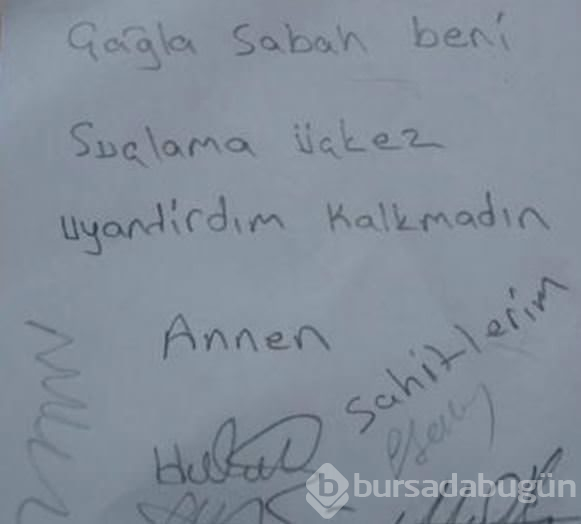 Çağla Sabah beni
Suçlama üçkez
uyandirdım Kalkmadın
Annen
Şahitlerim
bursadabugün